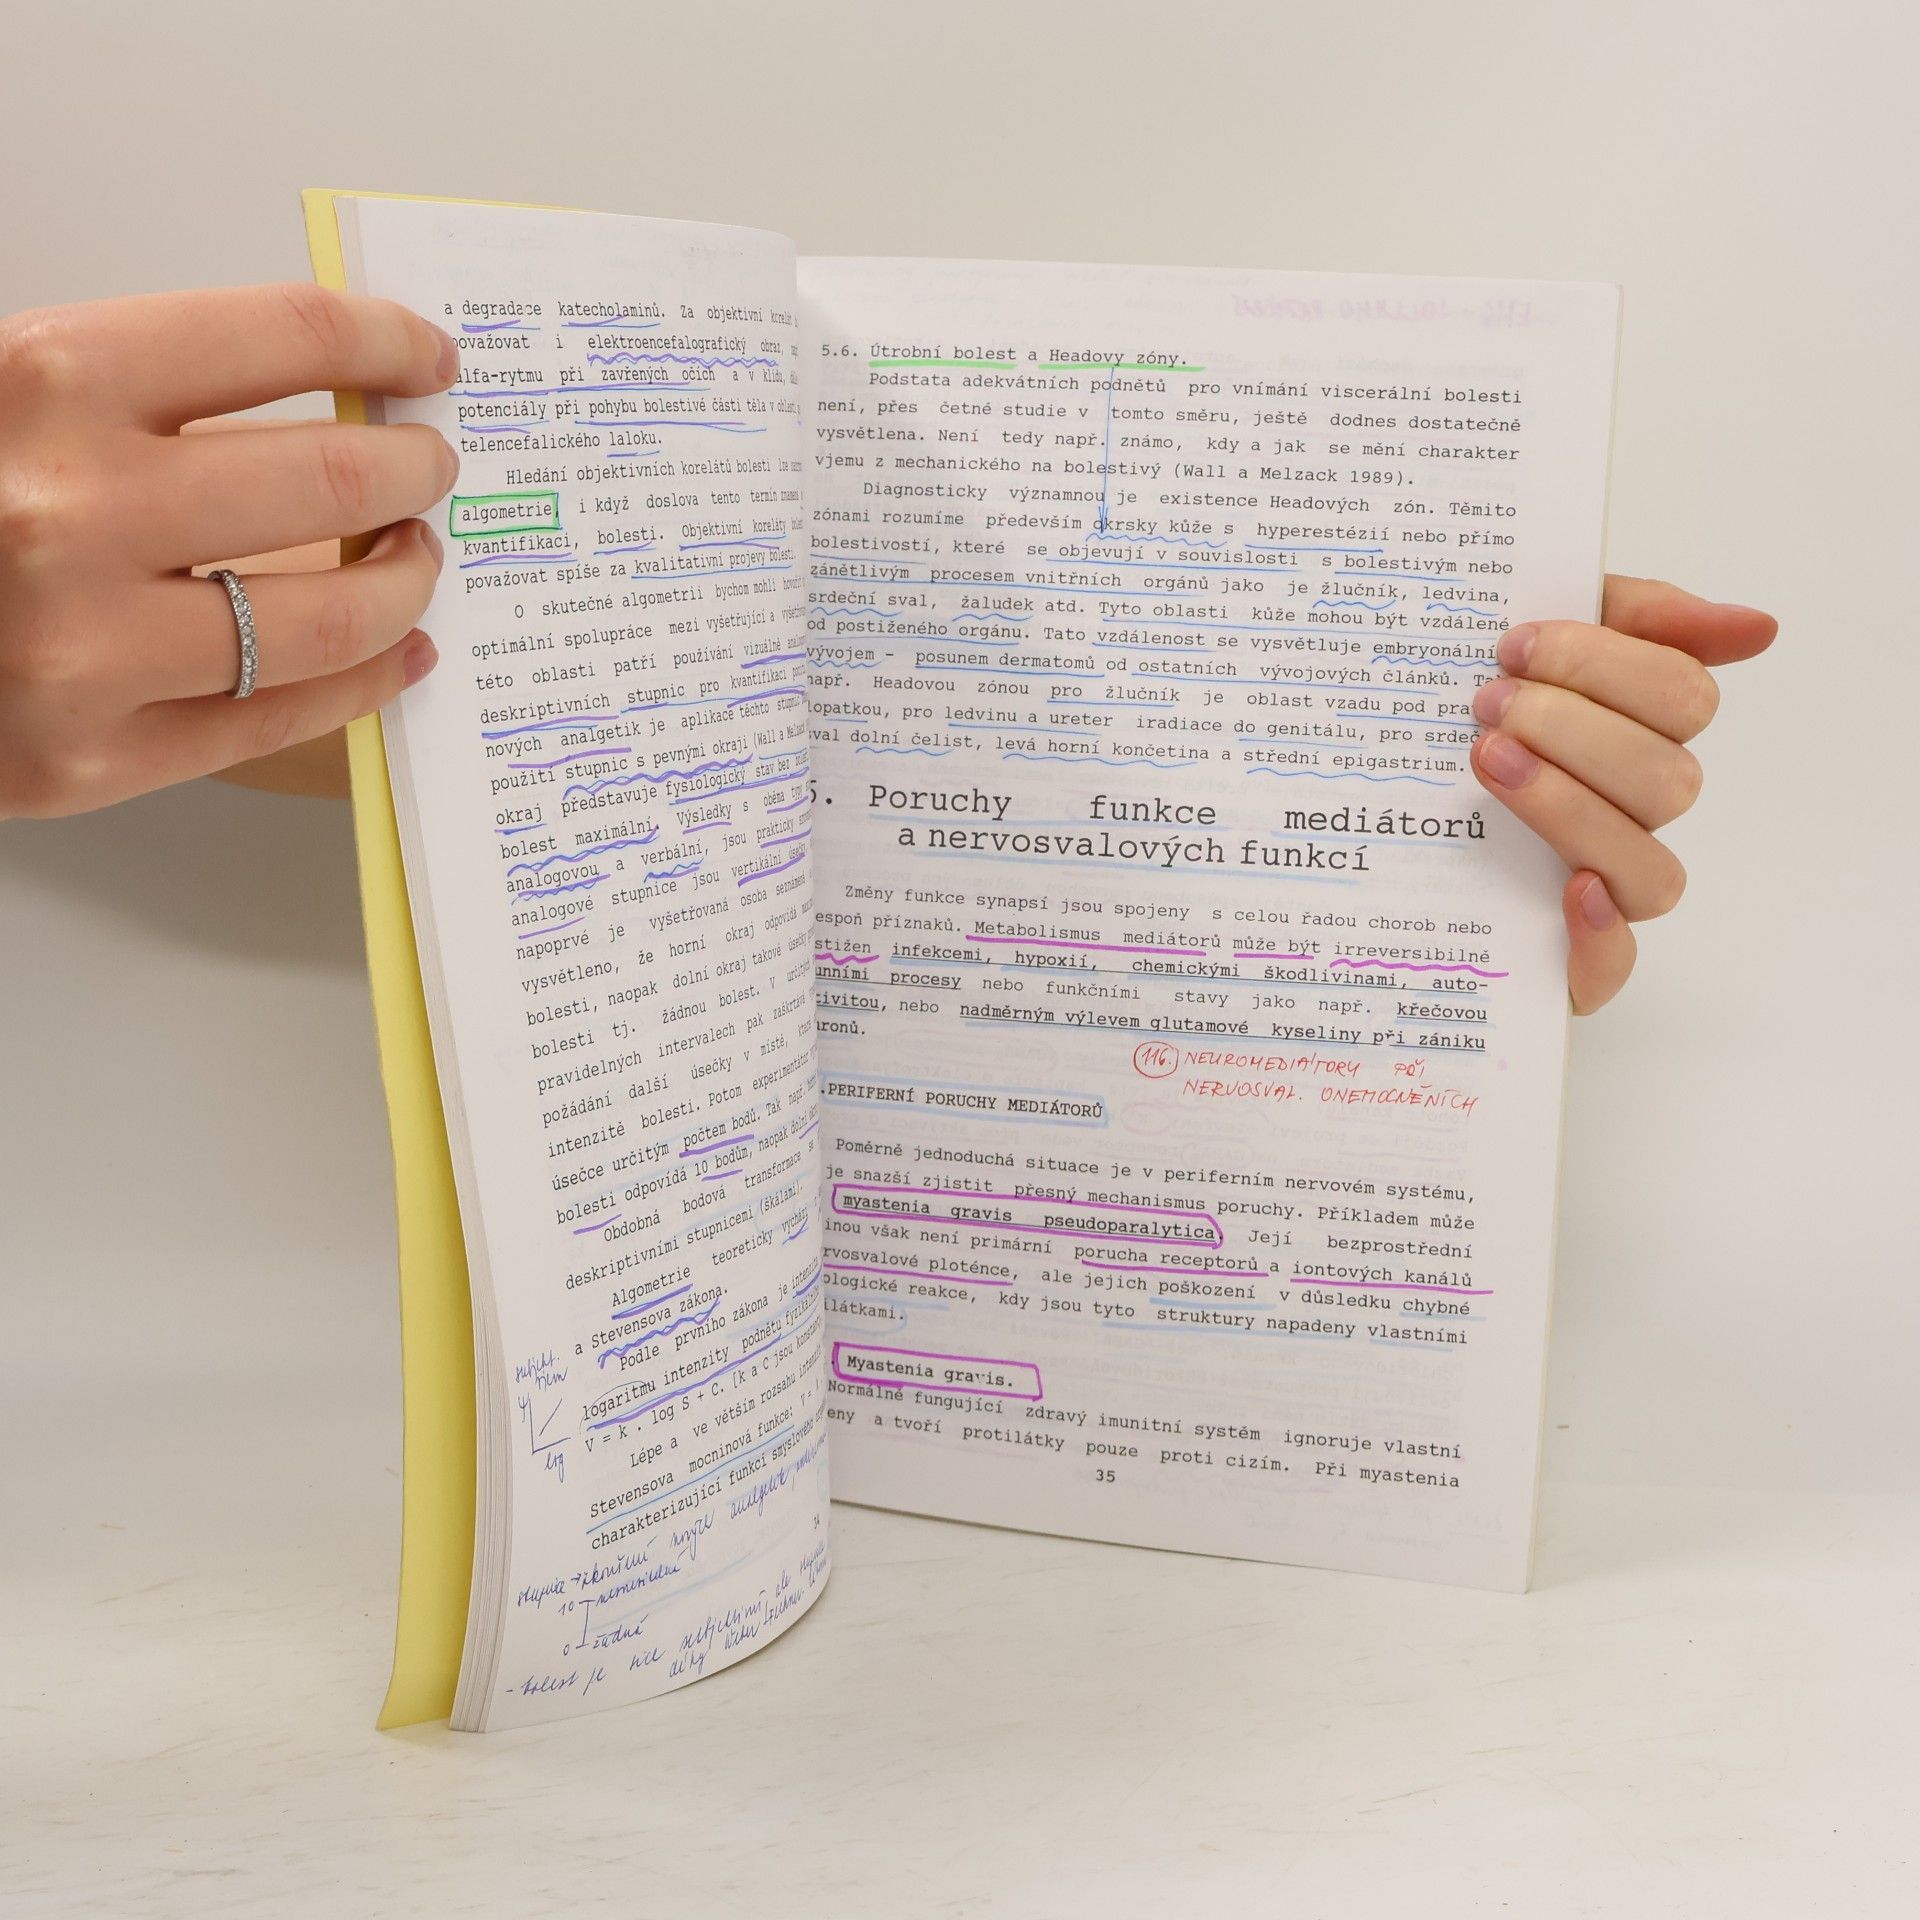 a degradace katecholaminů. Za objektivní
považovat i elektroencefalografický obraz,
alfa-rytmu při zavřených očích a v klidu,
potenciály při pohybu bolestivé části těla v
telencefalického laloku.
Hledání objektivních korelátů bolesti lze
algometrie, i když doslova tento termín
kvantifikaci, bolesti. Objektivní koreláty
považovat spíše za kvalitativní projevy bolesti.
O skutečné algometrii bychom mohli
optimální spolupráce mezi vyšetřující a
této oblasti patří používání vizuálně
deskriptivních stupnic pro kvantifikaci
nových analgetik je aplikace těchto stupnic
použití stupnic s pevnými okraji (Wall a Melzack
okraj představuje fysiologický stav bez
bolest maximální. Výsledky s oběma typy
analogovou a verbální, jsou prakticky
analogové stupnice jsou vertikální úsečky,
napoprvé je vyšetřovaná osoba seznámena
vysvětleno, že horní okraj odpovídá
bolesti, naopak dolní okraj takové úsečky
bolesti tj. žádnou bolest. V
pravidelných intervalech pak zaškrtává
požádání další úsečky v místě,
intenzitě bolesti. Potom experimentátor
úsečce určitým počtem bodů. Tak např.
bolesti odpovídá 10 bodům, naopak dolní
Obdobná bodová transformace se
deskriptivními stupnicemi (škálami).
Algometrie teoreticky vychází
a Stevensova zákona.
Podle prvního zákona je
logaritmu intenzity podnětu
V = k . log S + C. [k a C jsou
Lépe a ve větším rozsahu
Stevensova mocninová funkce: V =
charakterizující funkci smyslového
log
34
10
nesnesitelná
0 žádná
- bolest je sice subjektivní ale
díky Weber
5.6. Útrobní bolest a Headovy zóny.
Podstata adekvátních podnětů pro vnímání viscerální bolesti
není, přes četné studie v tomto směru, ještě dodnes dostatečně
vysvětlena. Není tedy např. známo, kdy a jak se mění charakter
vjemu z mechanického na bolestivý (Wall a Melzack 1989).
Diagnosticky významnou je existence Headových zón. Těmito
zónami rozumíme především okrsky kůže s hyperestézií nebo přímo
bolestivostí, které se objevují v souvislosti s bolestivým nebo
zánětlivým procesem vnitřních orgánů jako je žlučník, ledvina,
srdeční sval, žaludek atd. Tyto oblasti kůže mohou být vzdálené
od postiženého orgánu. Tato vzdálenost se vysvětluje embryonální
vývojem - posunem dermatomů od ostatních vývojových článků.
např. Headovou zónou pro žlučník je oblast vzadu pod
lopatkou, pro ledvinu a ureter iradiace do genitálu, pro
sval dolní čelist, levá horní končetina a střední epigastrium.
Poruchy funkce mediátorů
a nervosvalových funkcí
Změny funkce synapsí jsou spojeny s celou řadou chorob nebo
příznaků. Metabolismus mediátorů může být irreversibilně
infekcemi, hypoxií, chemickými škodlivinami, auto-
procesy nebo funkčními stavy jako např. křečovou
nebo nadměrným výlevem glutamové kyseliny při zániku
116. NEUROMEDIÁTORY PŘI
NERVOSVAL. ONEMOCNĚNÍCH
PERIFERNÍ PORUCHY MEDIÁTORŮ
Poměrně jednoduchá situace je v periferním nervovém systému,
je snazší zjistit přesný mechanismus poruchy. Příkladem může
myastenia gravis pseudoparalytica. Její bezprostřední
však není primární porucha receptorů a iontových kanálů
ploténce, ale jejich poškození v důsledku chybné
reakce, kdy jsou tyto struktury napadeny vlastními
Myastenia gravis.
Normálně fungující zdravý imunitní systém ignoruje vlastní
a tvoří protilátky pouze proti cizím. Při myastenia
35